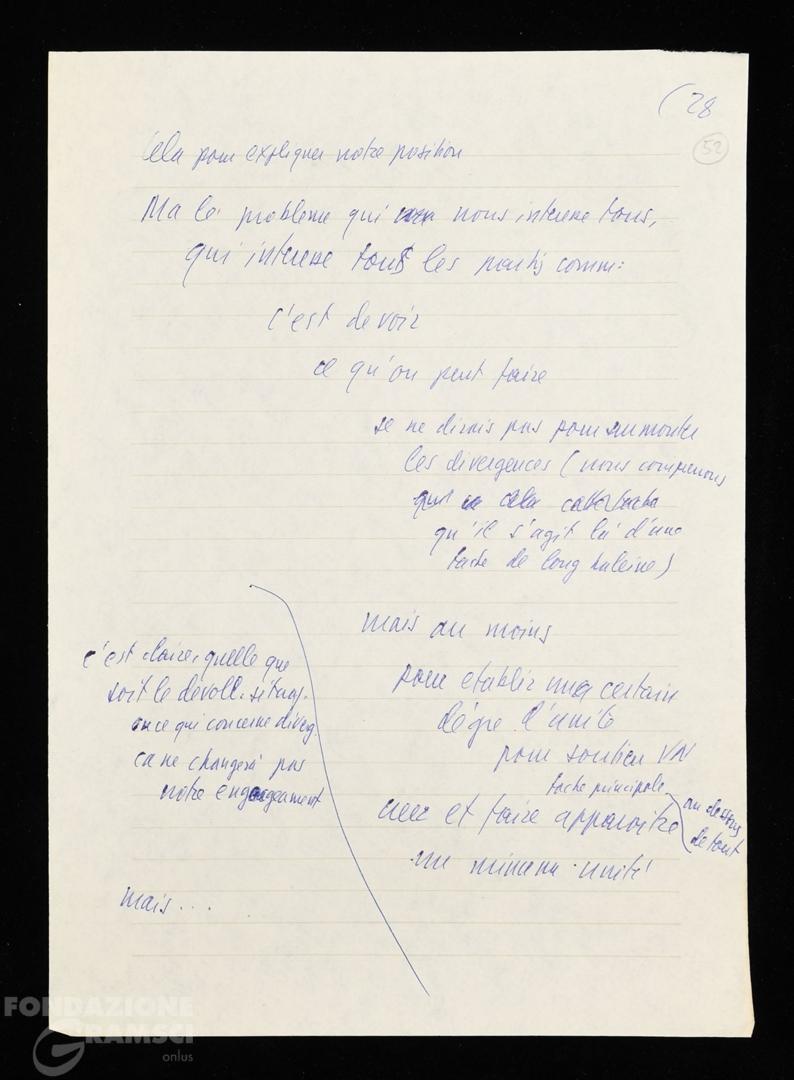 (28
52
Cela pour expliquer notre position
Ma le probleme qui nous interesse tous,
qui interesse tous les partis comm:
c'est de voir
ce qu'on peut faire
je ne dirais pas pour surmonter
les divergences (nous comprenons
cela
qu'il s'agit là d'une
tache de long haleine)
mais au moins
pour etablir un certain
dégre d'unité
pour soutien VN
tache principale
au dessus
de tout
creer et faire apparoitre
un minimum unité
c'est claire, quelle que
soit le devoll. situaz.
en ce qui concerne diverg.
ca ne changerà pas
notre engagement
mais...
FONDAZIONE
GRAMSCI
onlus